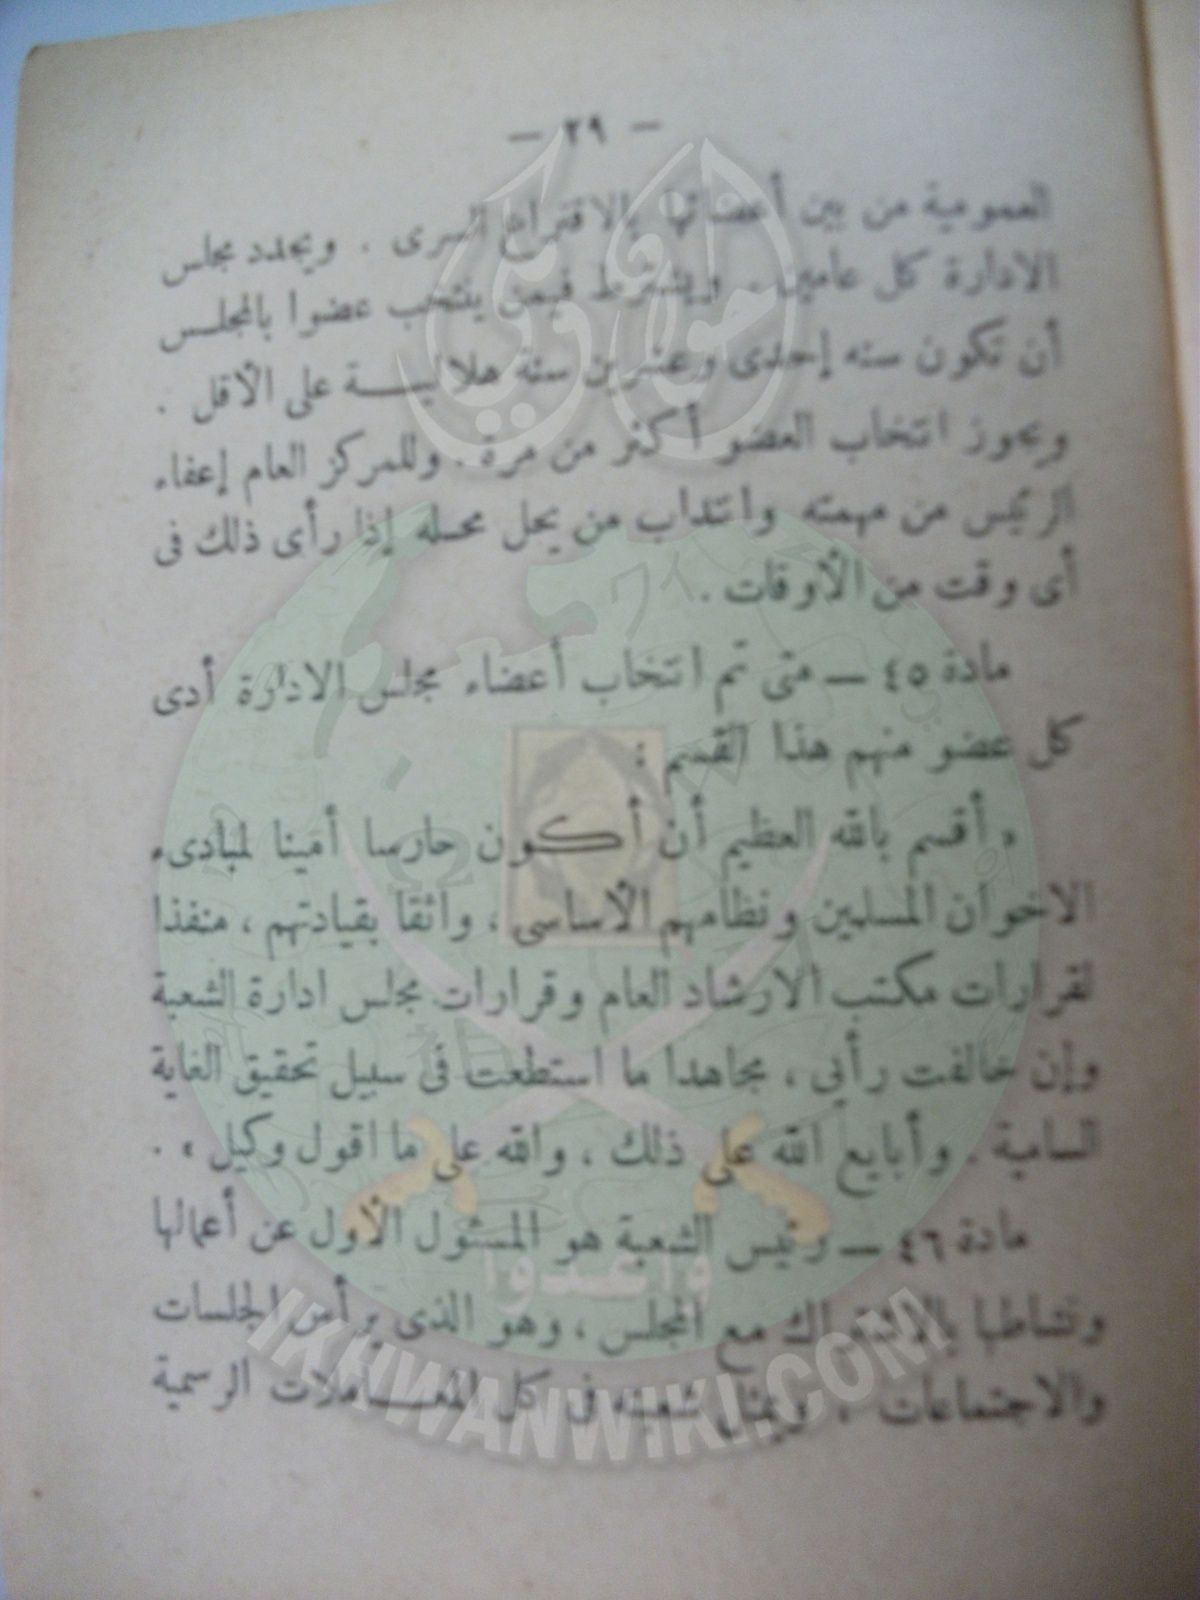 — ٢٩ —
العمومية من بين أعضائها بالاقتراع السرى . ويجدد مجلس
الادارة كل عامين . ويشترط فيمن ينتخب عضوا بالمجلس
أن تكون سنه إحدى وعشرين سنة هلالية على الأقل .
ويجوز انتخاب العضو أكثر من مرة . وللمركز العام إعفاء
الرئيس من مهمته وانتداب من يحل محله إذا رأى ذلك فى
أى وقت من الأوقات .
مادة ٤٥ — متى تم انتخاب أعضاء مجلس الادارة أدى
كل عضو منهم هذا القسم :
« أقسم بالله العظيم أن أكون حارسا أمينا لمبادىء
الاخوان المسلمين ونظامهم الأساسى ، واثقا بقيادتهم ، منفذا
لقرارات مكتب الارشاد العام وقرارات مجلس ادارة الشعبة
وإن خالفت رأيى ، مجاهدا ما استطعت فى سبيل تحقيق الغاية
السامية . وأبايع الله على ذلك ، والله على ما اقول وكيل » .
مادة ٤٦ — رئيس الشعبة هو المسئول الأول عن أعمالها
ونشاطها بالاشتراك مع المجلس ، وهو الذى يرأس الجلسات
والاجتماعات ، ويمثل شعبته فى كل المعاملات الرسمية
إخوان ويكي
وأعدوا
IKHWANWIKI.COM